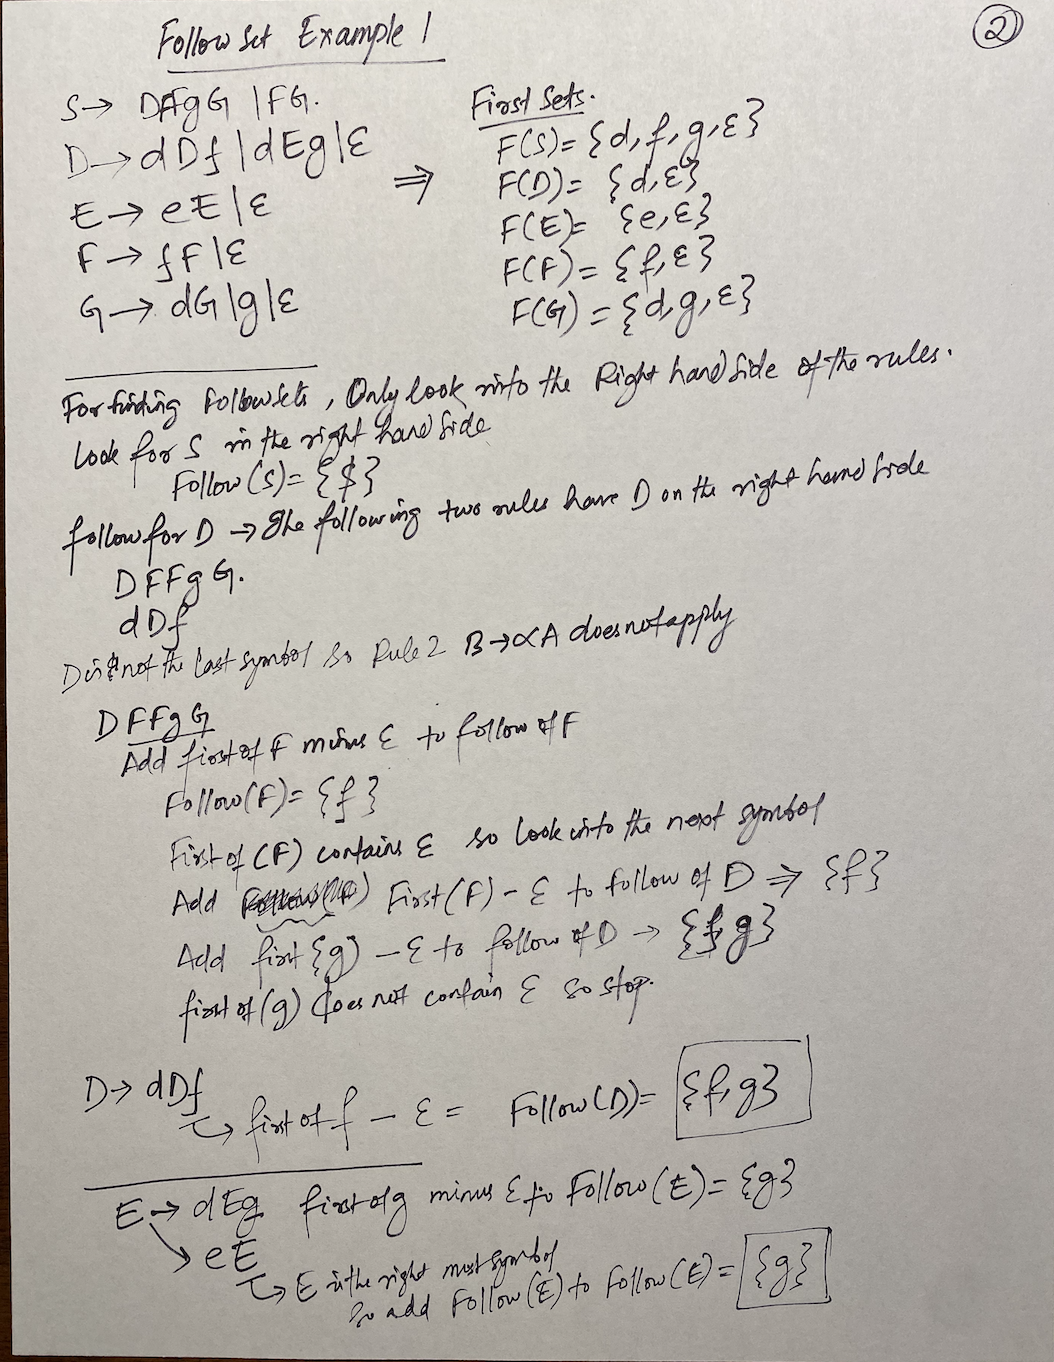 Follow Set Example 1
②
S → DFFgG | FG.
D → dDf | dEg | ε
E → eE | ε
F → fF | ε
G → dG | g | ε
⇒
First Sets.
F(S) = {d, f, g, ε}
F(D) = {d, ε}
F(E) = {e, ε}
F(F) = {f, ε}
F(G) = {d, g, ε}
For finding Follow sets, Only look into the Right hand side of the rules.
Look for S in the right hand side
Follow (S) = {$}
follow for D → The following two rules have D on the right hand side
DFFgG.
dDf
D is not the last symbol so Rule 2 B → αA does not apply
DFFgG
Add first of F minus ε to follow of F
Follow(F) = {f}
First of (F) contains ε so look into the next symbol
Add First (F) - ε to follow of D ⇒ {f}
Add first {g) - ε to follow of D → {f g}
first of (g) does not contain ε so stop.
D → dDf
↳ first of f - ε = Follow (D) = {f, g}
E → dEg first of g minus ε to Follow (E) = {g}
↘ eE
↳ E is the right most symbol
So add Follow (E) to Follow (E) = {g}